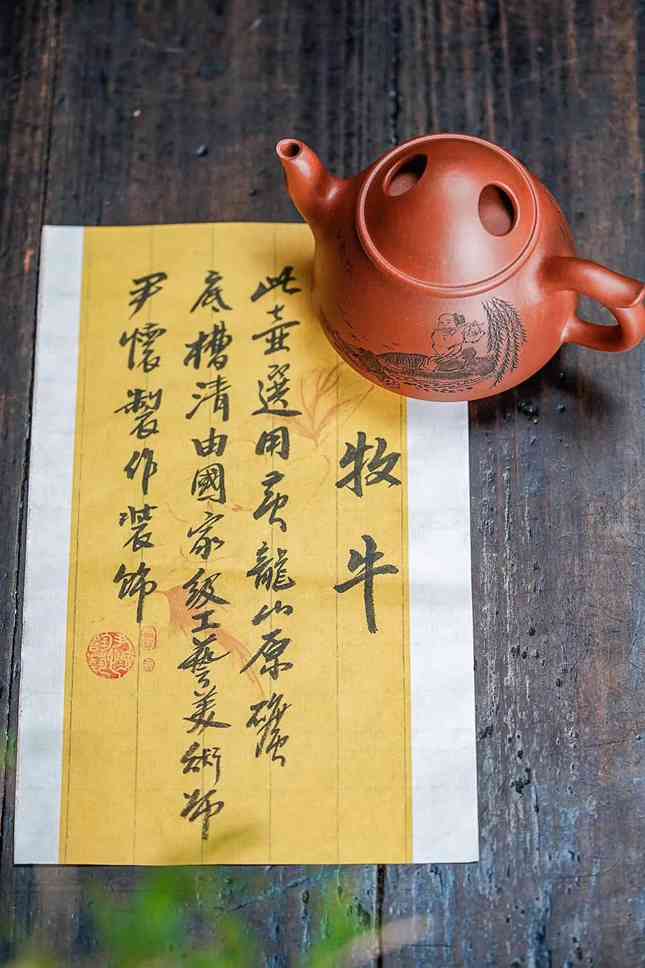 牧牛
此壺選用黃龍山原礦
底槽清由國家級工藝美術師
尹懷製作裝飾